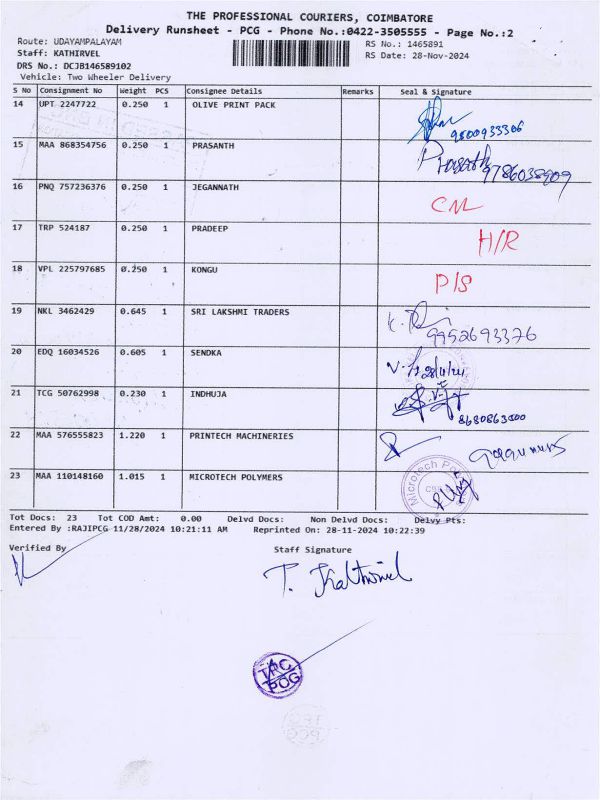 THE PROFESSIONAL COURIERS, COIMBATORE
Delivery Runsheet - PCG - Phone No.:0422-3505555 - Page No.:2
Route: UDAYAMPALAYAM RS No.: 1465891
Staff: KATHIRVEL RS Date: 28-Nov-2024
DRS No.: DCJB146589102
Vehicle: Two Wheeler Delivery
S No Consignment No Weight PCS Consignee Details Remarks Seal & Signature
14 UPT 2247722 0.250 1 OLIVE PRINT PACK
9500933306
15 MAA 868354756 0.250 1 PRASANTH Prasath
9786038909
16 PNQ 757236376 0.250 1 JEGANNATH CM
17 TRP 524187 0.250 1 PRADEEP H/R
18 VPL 225797685 0.250 1 KONGU P/S
19 NKL 3462429 0.645 1 SRI LAKSHMI TRADERS
9952693376
20 EDQ 16034526 0.605 1 SENDKA 28/11/24
21 TCG 50762998 0.230 1 INDHUJA
8680863500
22 MAA 576555823 1.220 1 PRINTECH MACHINERIES
23 MAA 110148160 1.015 1 MICROTECH POLYMERS Microtech
Tot Docs: 23 Tot COD Amt: 0.00 Delvd Docs: Non Delvd Docs: Delvy Pts:
Entered By :RAJIPCG 11/28/2024 10:21:11 AM Reprinted On: 28-11-2024 10:22:39
Verified By Staff Signature
T. Kathirvel
TRC
PCG